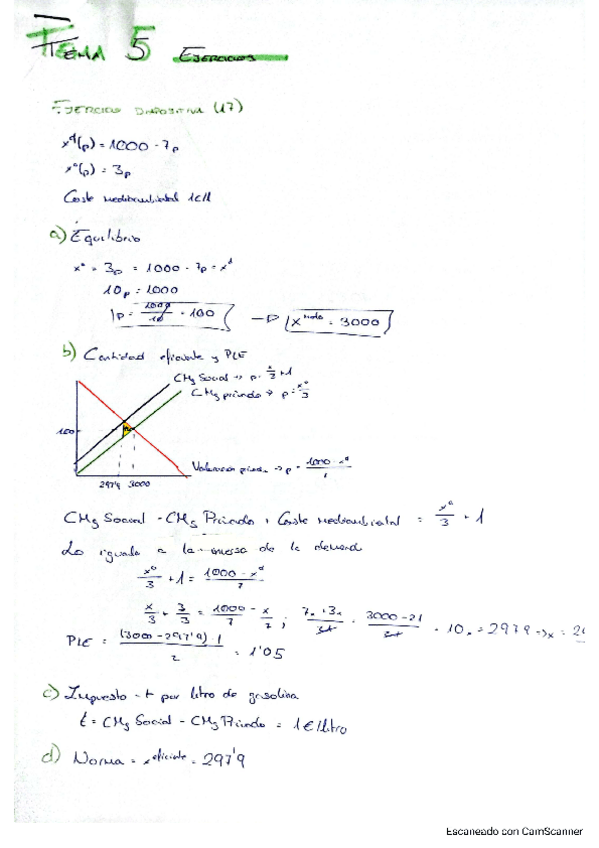 TEMA 5 EJERCICIOS
EJERCICIO DIAPOSITIVA (17)
xᵈ(p) = 1000 - 7p
xᵒ(p) = 3p
Coste medioambiental 1€/l
a) Equilibrio
xᵒ = 3p = 1000 - 7p = xᵈ
10p = 1000
p = 1000/10 = 100 → xᵐᵈᵒ = 3000
b) Cantidad eficiente y PIE
CMg Social → p = x/3 + 1
CMg privado → p = xᵒ/3
100
Valoración → p = 1000 - xᵈ/7
297'9 3000
CMg Social = CMg Privado + Coste medioambiental = xᵒ/3 + 1
Lo igualo a la inversa de la demand
xᵒ/3 + 1 = 1000 - xᵈ/7
x/3 + 3/3 = 1000/7 - x/7 ; 7x + 3x = 3000 - 21 = 10x = 2979 → x =
PIE = (3000 - 297'9) · 1/2 = 1'05
c) Impuesto t por litro de gasolina
t = CMg Social - CMg Privado = 1€/litro
d) Norma = xᵉᶠⁱᶜⁱᵉⁿᵗᵉ = 297'9
Escaneado con CamScanner